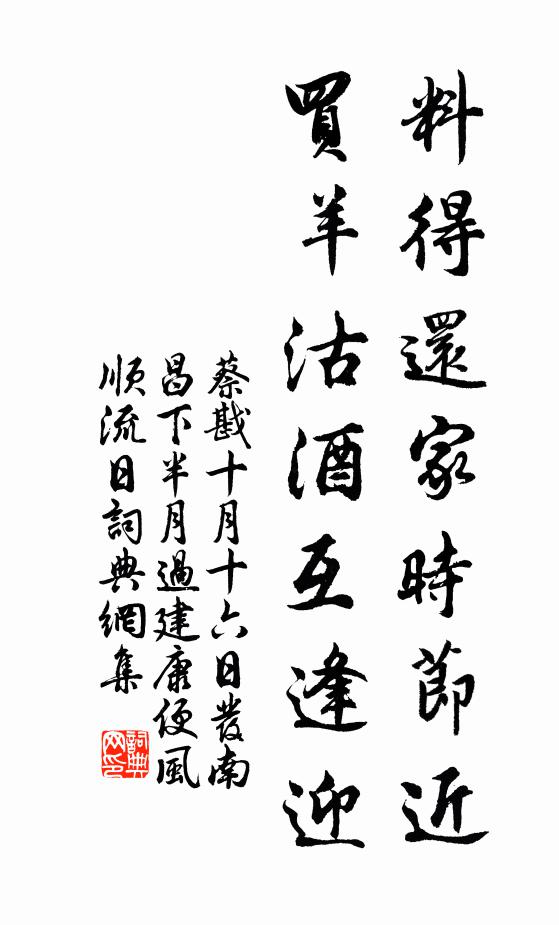 料得還家時節近
買羊沽酒互逢迎
蔡戡十月十六日發南
昌下半月過建康便風
順流日詞典網集
詞典网印